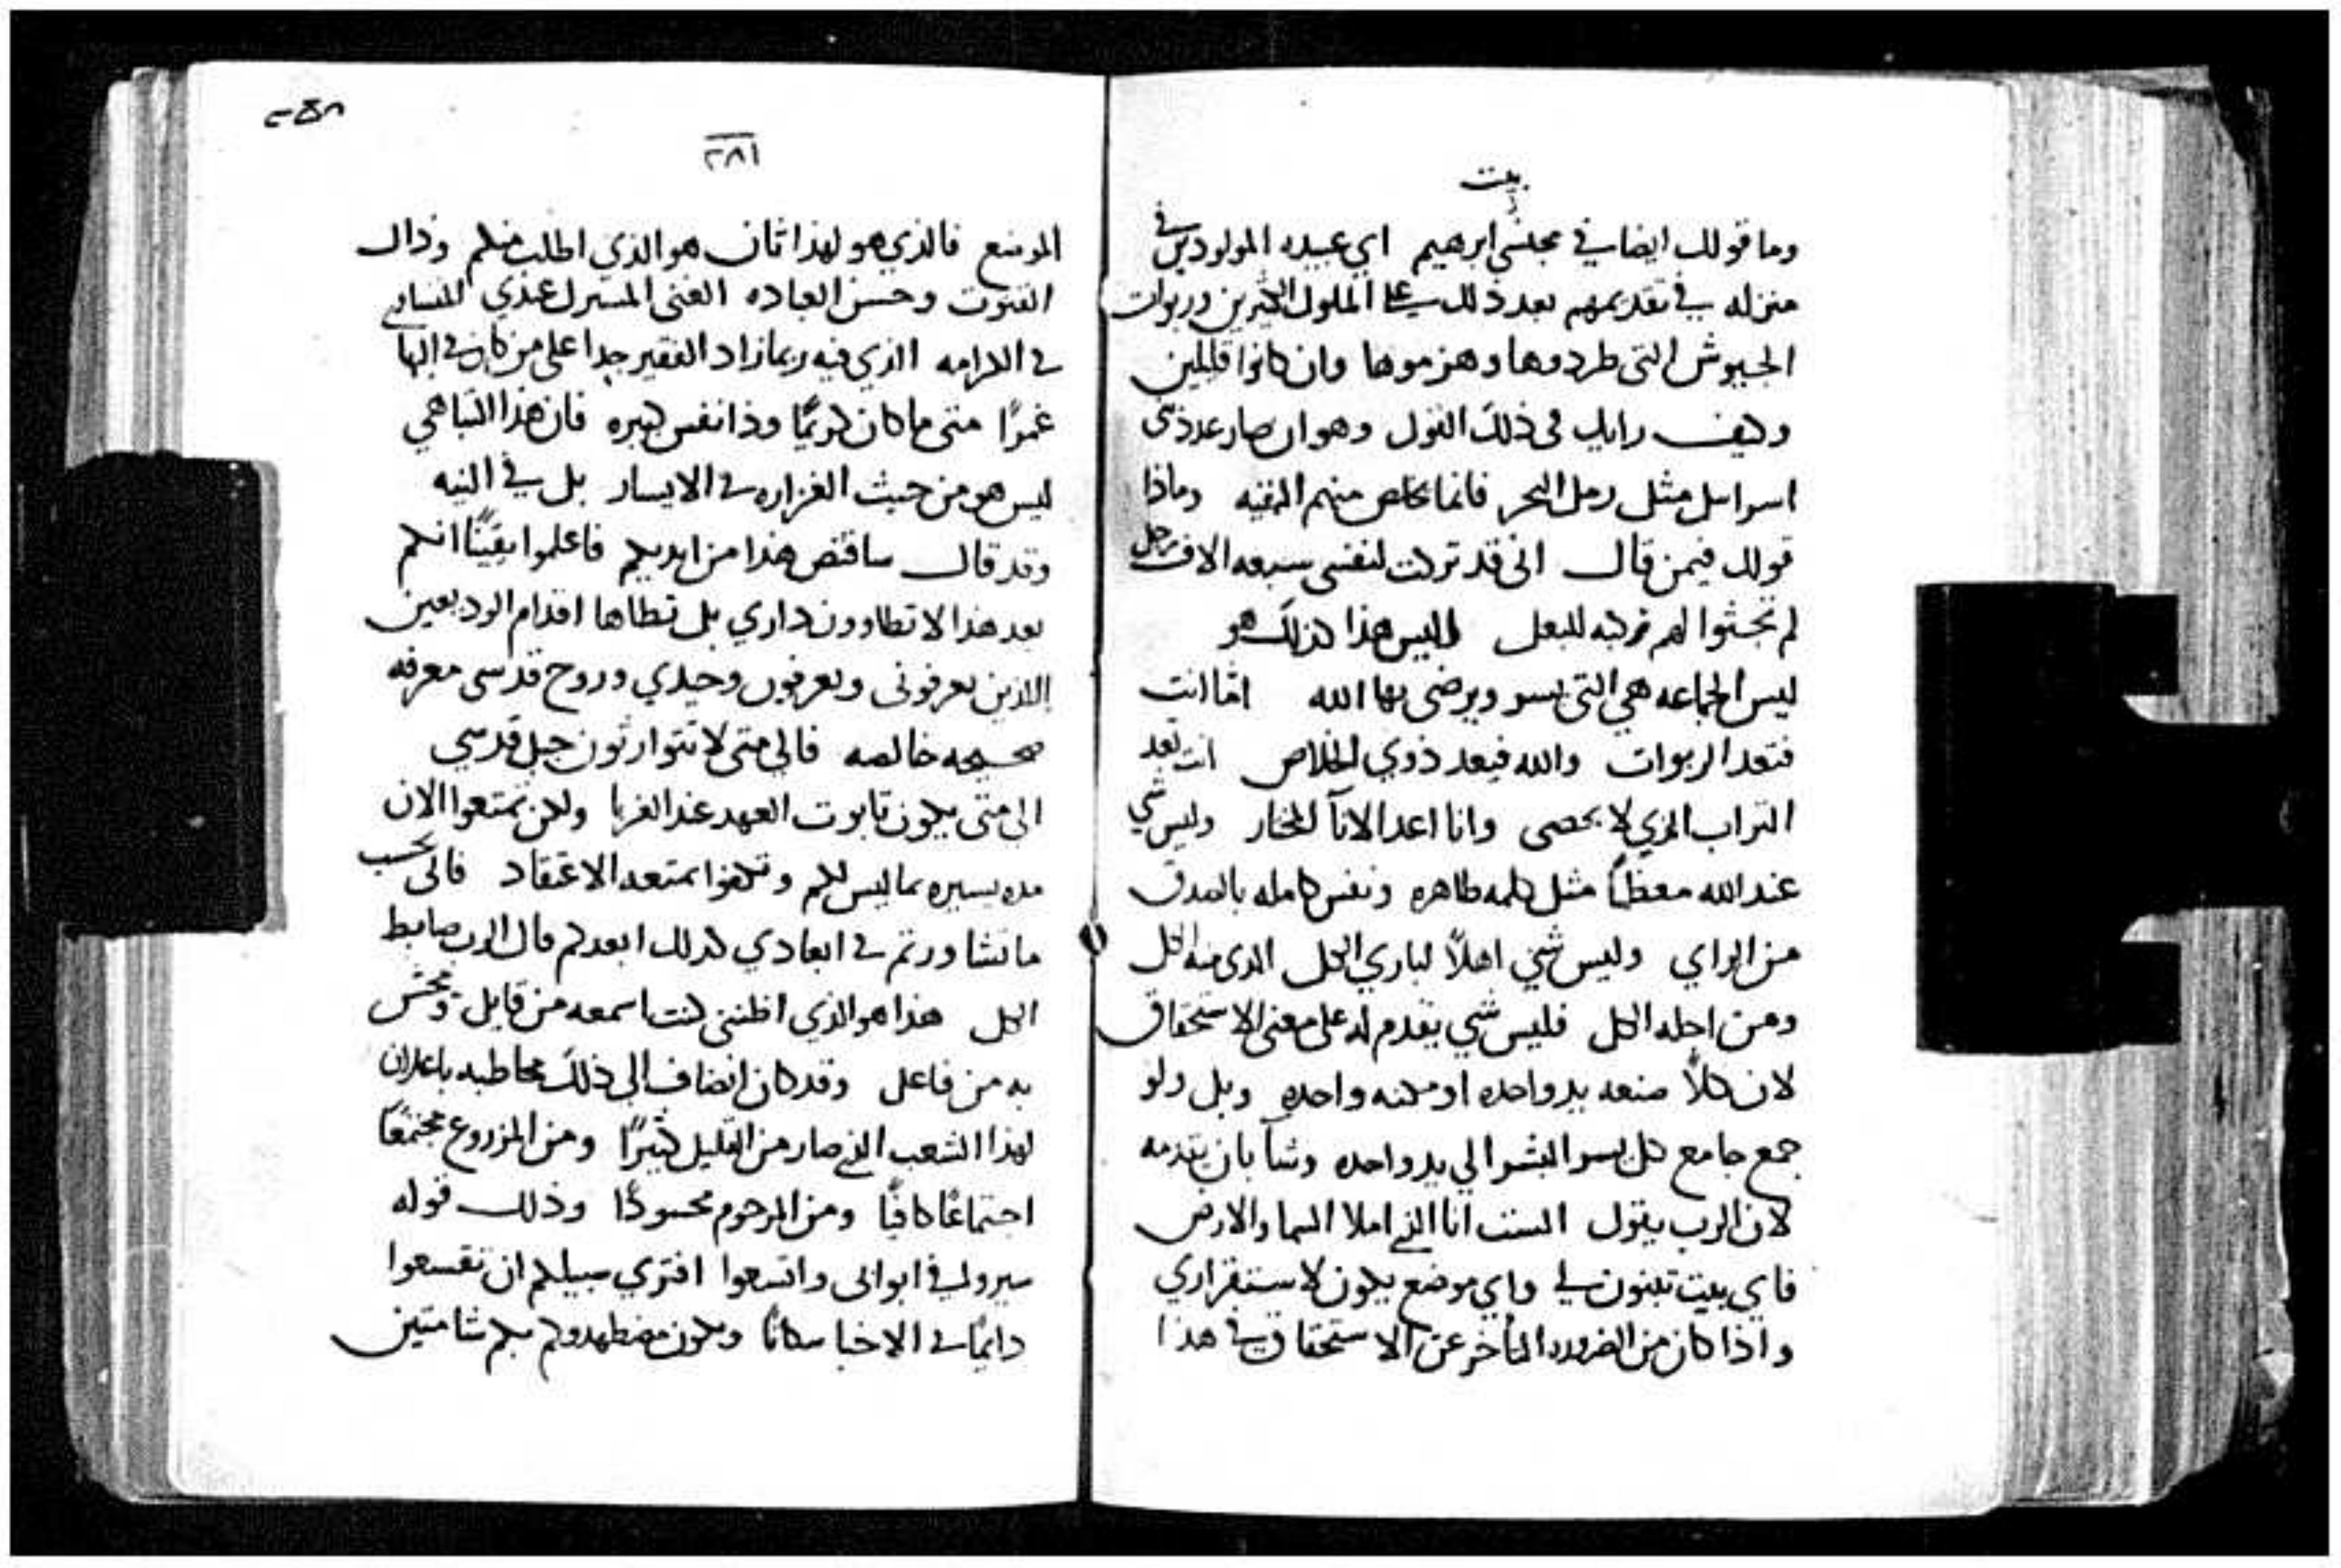 بيت
وما قولك ايضا في مجلسي ابرهيم اي عبيده المولودين في
منزله في تقديمهم بعد ذلك على الملوك الكثيرين وربوات
الجيوش التي طردوها وهزموها وان كانوا قليلين
وكيف رايك في ذلك القول وهو ان صار عدد بني
اسرايل مثل رمل البحر فانما تخلص منهم البقيه وماذا
قولك فيمن قال اني قد تركت لنفسي سبعه الاف رجل
لم تجثوا لهم ركبه للبعل اليس هذا كذلك هو
ليس الجماعه هي التي يسر ويرضى بها الله اما انت
فتعد الربوات والله فيعد ذوي الخلاص انت تعد
التراب الذي لا يحصى وانا اعد الانآ المختار وليس شي
عند الله معظمًا مثل كلمه طاهره ونفس كامله بالصدق
من الراي وليس شي اهلًا لباري الكل الذي منه الكل
ومن اجله الكل فليس شي يقدم له على معنى الاستحقاق
لان كلًا صنعه يد واحده او مكنه واحده وبل ولو
جمع جامع كل يسر البشر الي يد واحده وشآ بان يقدمه
لان الرب يقول الست انا الذي املا السما والارض
فاي بيت تبنون لي واي موضع يكون لاستقراري
واذا كان من الضروره التأخر عن الاستحقاق في هذا
٢٨١
الموضع فالذي هو لهذا ثان هو الذي اطلب منكم وذاك
القنوت وحسن العباده الغنى المشترك عندي المتساوي
في الكرامه الذي فيه ربما زاد الفقير جدا على من كان في البها
غمرًا متى ما كان كريمًا وذا نفس كبيره فان هذا التباهي
ليس هو من حيث الغزاره في الايسار بل في النيه
وقد قال ساقتص هذا من ايديكم فاعلموا يقينًا انكم
بعد هذا لا تطاوون داري بل تطاها اقدام الوديعين
الذين يعرفوني ويعرفون وحيدي وروح قدسي معرفه
صحيحه خالصه فالي متى لا تتوارثون جبل قدسي
الى متى يكون تابوت العهد عند الغربا ولكن تمتعوا الان
مده يسيره بما ليس لكم الاعتقاد فاني بحسب
ما تشاورتم في ابعادي كذلك ابعدكم قال الرب ضابط
الكل هذا هو الذي اظنني كنت اسمعه من قايل
به من فاعل وقد كان انضاف الى ذلك مخاطبه باعلان
لهذا الشعب الذي صار من القليل كثيرًا ومن المزروع مجتمعًا
اجتماعًا كافيًا ومن المرحوم محسودًا وذلك قوله
سيروا في ابوابي واتسعوا افترى سبيلكم ان تقسموا
دايمًا في الاخبا سكانًا ويكون مضطهدوكم بكم شامتين